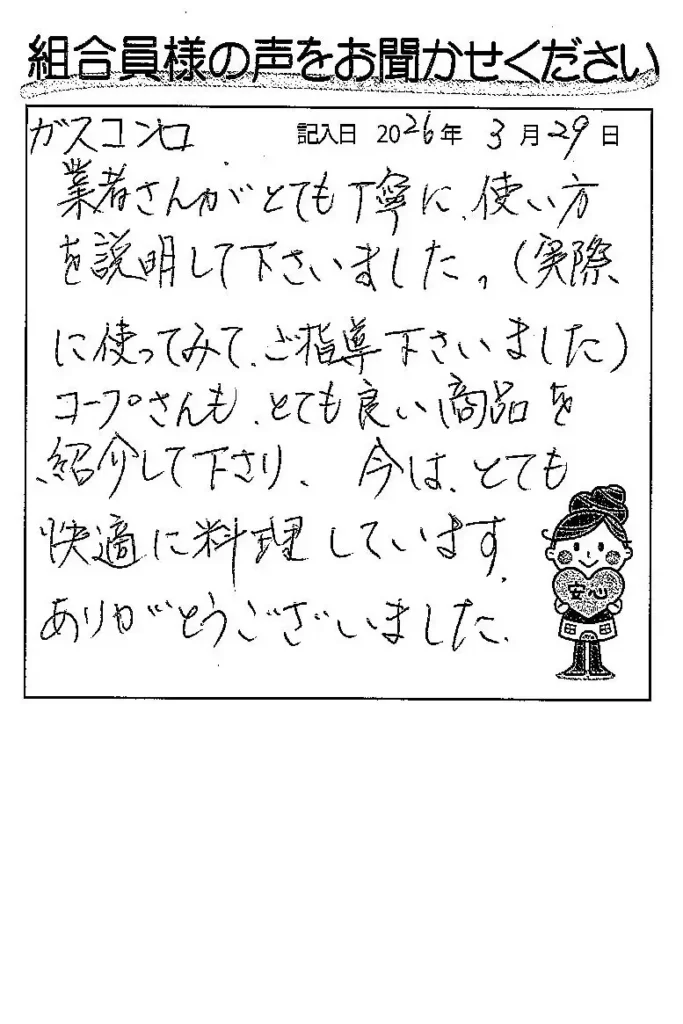 組合員様の声をお聞かせください
ガスコンロ 記入日 2026年 3月29日
業者さんがとても丁寧に、使い方
を説明して下さいました。(実際
に使ってみて、ご指導下さいました)
コープさんも、とても良い商品を
紹介して下さり、今は、とても
快適に料理しています。
ありがとうございました。
安心